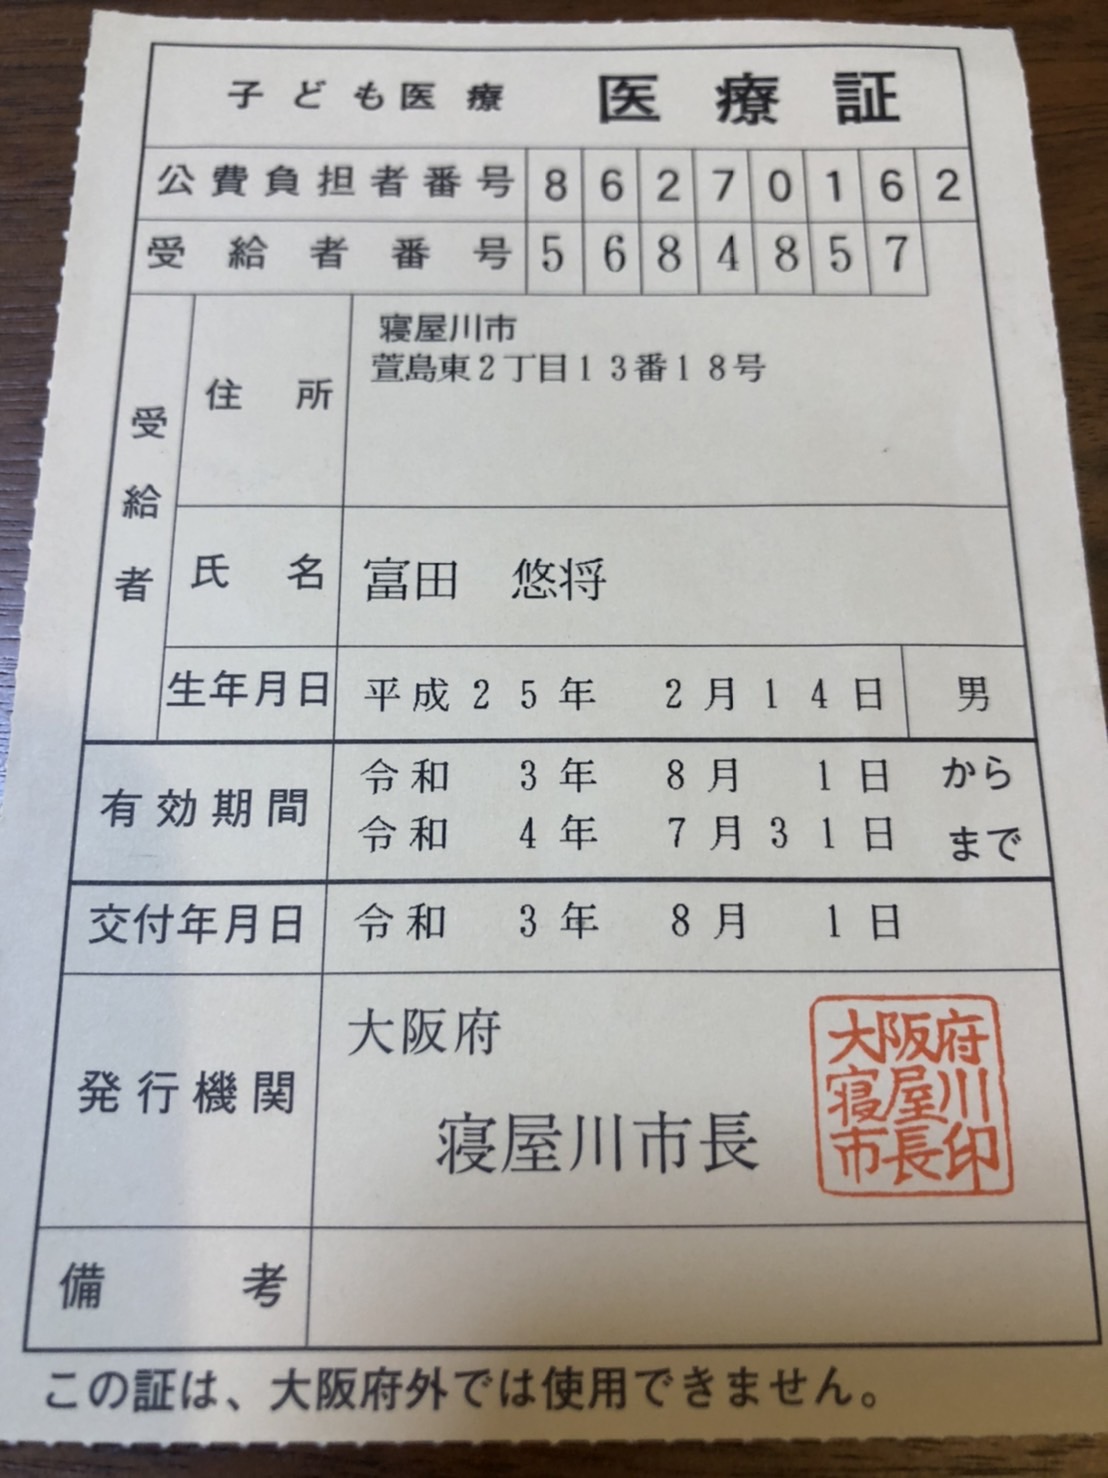 子ども医療 医療証
公費負担者番号 86270162
受給者番号 5684857
受給者
住所 寝屋川市
萱島東2丁目13番18号
氏名 富田 悠将
生年月日 平成25年 2月14日 男
有効期間 令和 3年 8月 1日 から
令和 4年 7月31日 まで
交付年月日 令和 3年 8月 1日
発行機関 大阪府
寝屋川市長
大阪府
寝屋川
市長印
備考
この証は、大阪府外では使用できません。